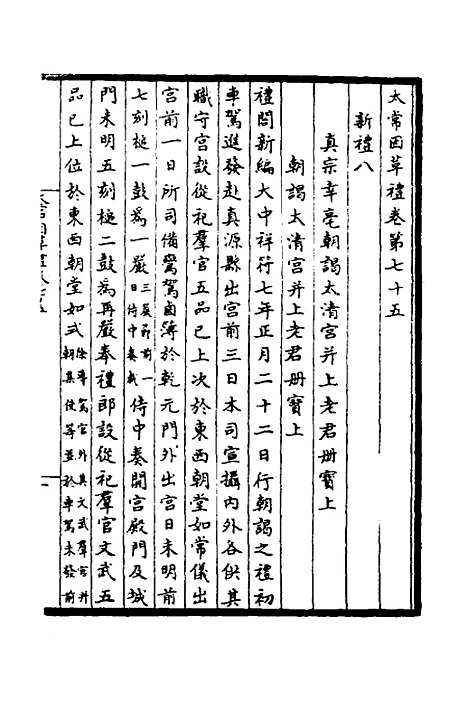 太常因革禮卷第七十五
新禮八
真宗幸亳朝謁太清宮并上老君册寶上
朝謁太清宮并上老君册寶上
禮閣新編大中祥符七年正月二十二日行朝謁之禮初
車駕進發赴真源縣出宮前三日本司宣攝内外各供其
職守宮設從祀羣官五品已上次於東西朝堂如常儀出
宮前一日所司備鸞駕鹵簿於乾元門外出宮日未明前
七刻槌一鼓爲一嚴三嚴節前一日侍中奏裁侍中奏開宮殿門及城
門未明五刻槌二鼓爲再嚴奉禮郎設從祀羣官文武五
品已上位於東西朝堂如式除導駕官外其文武羣官并朝集使等並於車駕未發前